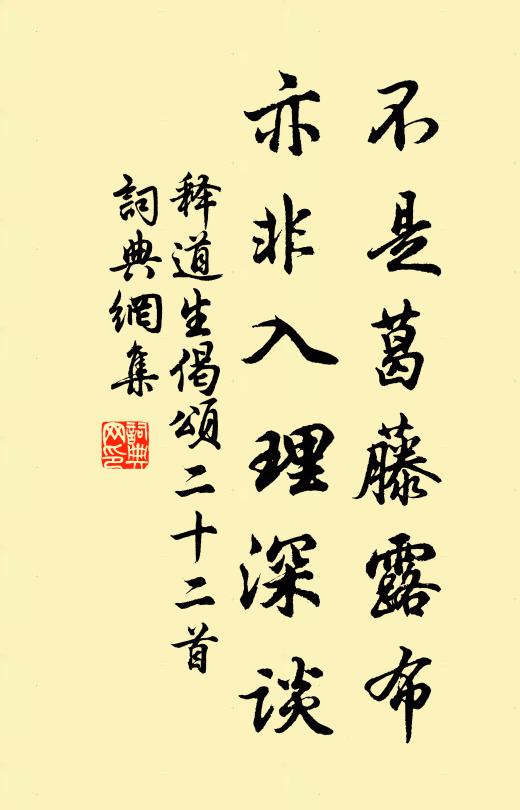 不是葛藤露布
亦非入理深谈
释道生偈頌二十二首
詞典網集
詞典網印